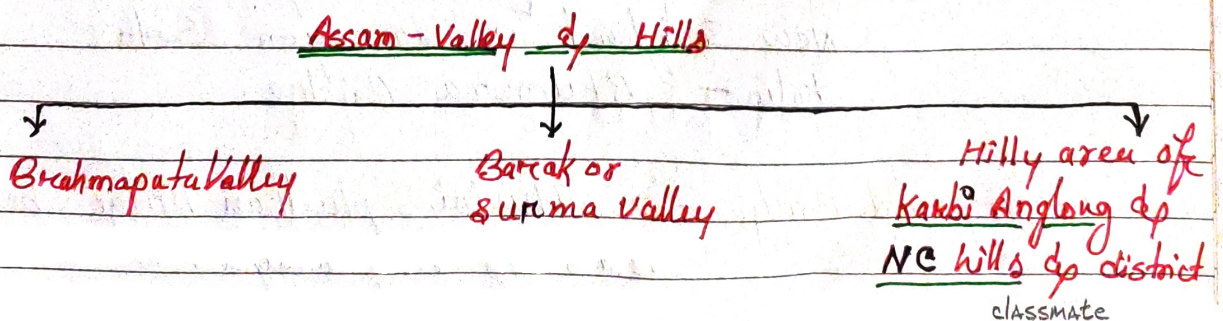 Assam - Valley & Hills
Brahmaputa Valley
Barak or
surma valley
Hilly area of
Karbi Anglong &
NC hills & district
classmate